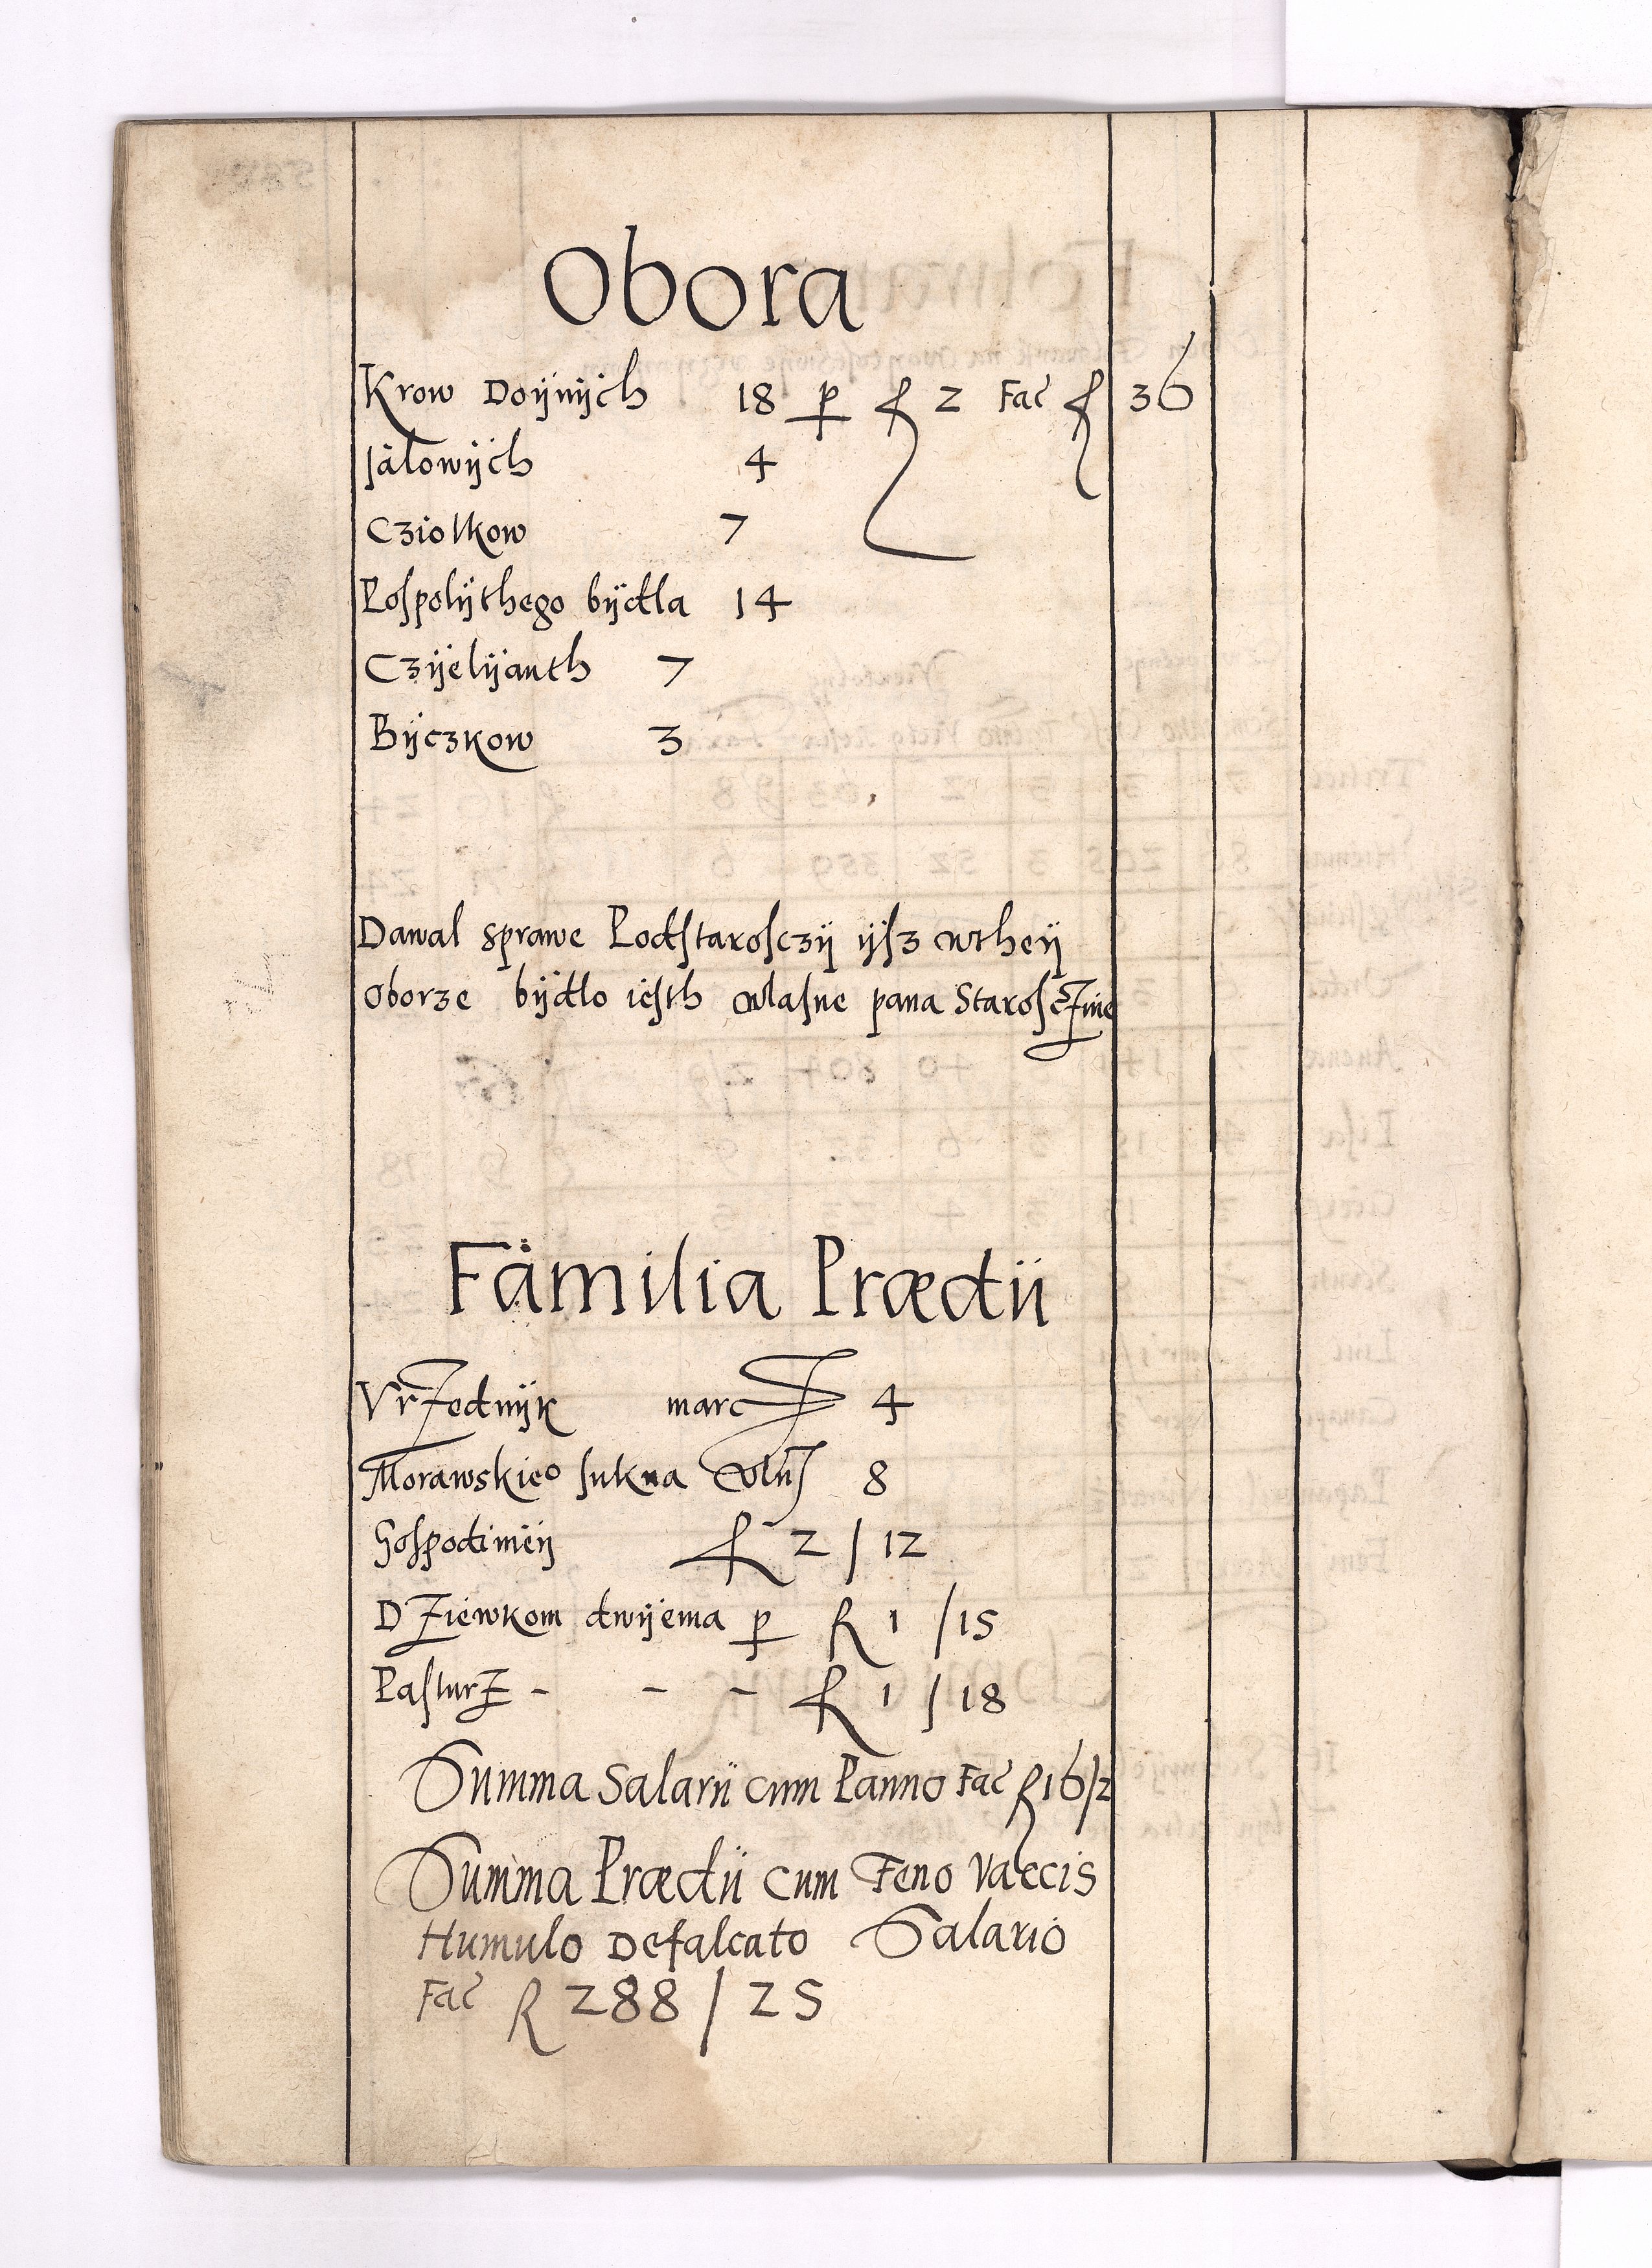 Obora
Krow Doijnÿch 18 p fl 2 Fac fl 36
Jałowÿch 4
Cziolkow 7
Pospolÿthego bÿdla 14
Czÿelÿanth 7
Bÿczkow 3
Dawal sprawe Podstarosczÿ ÿsz wtheÿ
oborze bÿdlo iesth wlasne pana Starosczine
Familia Prædii
Vrzednÿk marcz 4
Morawskieo sukna vln 8
Gospodinieÿ fl 2 / 12
Dziewkom dwÿema p fl 1 / 15
Pasturz - - - fl 1 / 18
Summa Salarii cum Panno Fac fl 16/2
Summa Prædii cum Feno Vaccis
Humulo Defalcato Salario
Fac fl 288 / 25